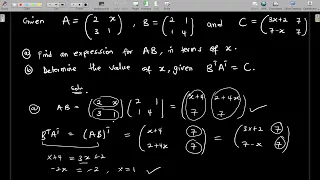 Given A = (2 x
3 1), B = (2 1
1 4) and C = (3x+2 7
7-x 7)
(a) Find an expression for AB, in terms of x.
(b) Determine the value of x, given BᵀAᵀ = C.
Soln.
(a) AB = (2 x
3 1) (2 1
1 4) = (x+4 2+4x
7 7) ✓
BᵀAᵀ = (AB)ᵀ = (x+4 7
2+4x 7) = (3x+2 7
7-x 7)
x+4 = 3x+2
-2x = -2, x=1 ✓